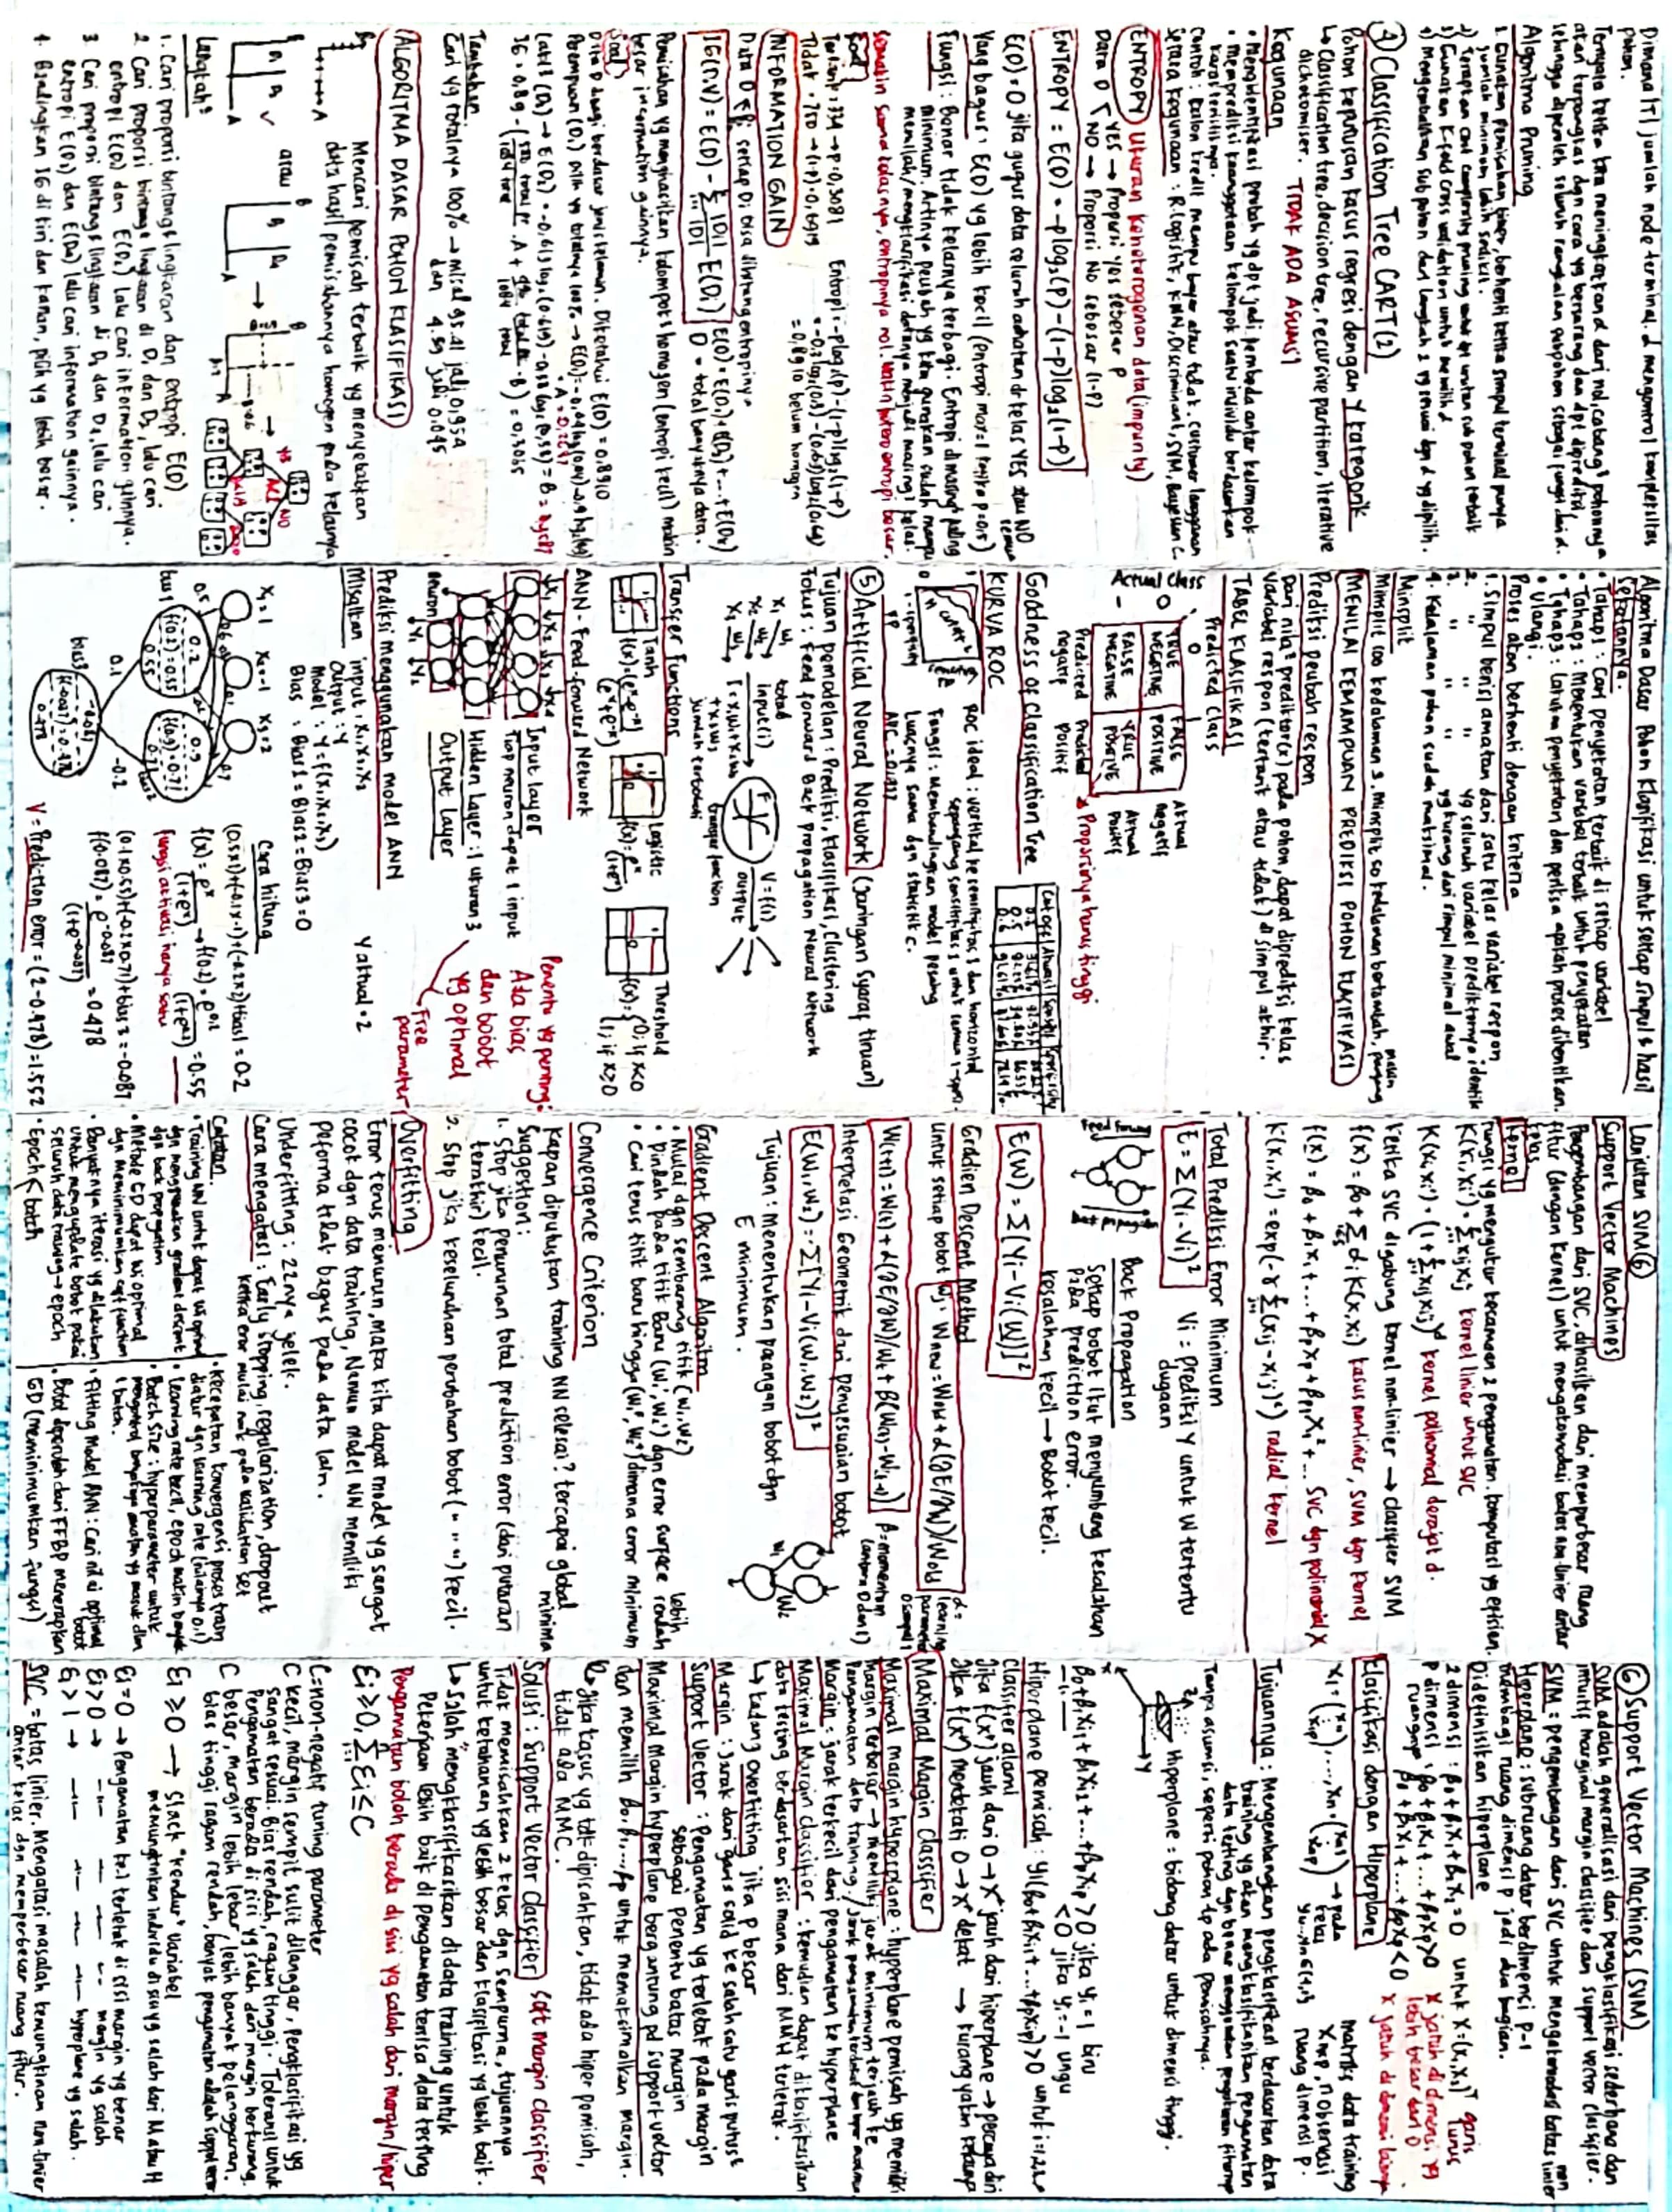 Dimana |T| jumlah node terminal. α mengontrol kompleksitas
pohon.
Ternyata ketika kita meningkatkan α dari nol, cabang² pohonnya
akan terpangkas dgn cara yg bersarang dan dpt diprediksi,
sehingga diperoleh seluruh rangkaian subpohon sebagai fungsi dari α.
Algoritma Pruning
1. Gunakan pemisahan biner, berhenti ketika simpul terminal punya
jumlah minimum lebih sedikit.
2) Terapkan cost complexity pruning untuk dpt urutan sub pohon terbaik
3) Gunakan K-fold cross validation untuk memilih α
4) Mengembalikan subpohon dari langkah 2 yg sesuai dgn α yg dipilih.
④ Classification Tree CART(2)
Pohon keputusan kasus regresi dengan Y kategorik
↳ Classification tree, decision tree, recursive partition, iterative
dichotomiser. TIDAK ADA ASUMSI
Kegunaan
• Mengidentifikasi peubah yg dpt jadi pembeda antar kelompok
• Memprediksi keanggotaan kelompok suatu individu berdasarkan
karakteristiknya.
Contoh : Calon kredit mampu bayar atau tidak. customer langganan
Secara kegunaan : R. logistik, KNN, Discriminant, SVM, Bayesian C.
ENTROPY Ukuran keheterogenan data (impurity)
Data D YES → Proporsi yes sebesar P
NO → Proporsi No sebesar (1-P)
ENTROPY = E(D) = -plog₂(p) - (1-p)log₂(1-p)
E(D) = 0 jika gugus data seluruh amatan dr kelas YES atau NO
semua
Yang bagus : E(D) yg lebih kecil (entropi max=1 ketika p=0,5)
Fungsi : Benar tidak kelasnya terbagi. Entropi dimasing² paling
minimum. Artinya peubah yg kita gunakan sudah mampu
memilah/mengklarifikasi datanya menjadi masing² kelas.
semakin sama kelasnya, entropinya nol. Makin hetero entropi besar.
Soal
Tertarik : 334 → p = 0,3081 Entropi = -plog₂(p) - (1-p)log₂(1-p)
Tidak : 750 → (1-p) = 0,6919
= 0,8910 belum homogen
INFORMATION GAIN
setiap Di bisa dihitung entropinya
IG(D,V) = E(D) - Σ |Di|/|D| E(Di) E(D) = E(D₁) + E(D₂) + ... + E(Dk)
D = total banyaknya data.
Pemisahan yg menghasilkan kelompok² homogen (entropi kecil) makin
besar information gainnya.
Soal
Data D dibagi berdasar jenis kelamin. Diketahui E(D) = 0,8910
Tambahan
Cari yg totalnya 100% → misal 95.41 jadi 0,954
dan 4.59 jadi 0.045
ALGORITMA DASAR POHON KLASIFIKASI
Mencari pemisah terbaik yg menyebabkan
data hasil pemisahannya homogen pada kelasnya
atau
Langkah²
1. Cari proporsi bintang & lingkaran dan entropi E(D)
2. Cari proporsi bintang & lingkaran di D₁ dan D₂, lalu cari
entropi E(D₁) dan E(D₂) lalu cari information gainnya.
3. Cari proporsi bintang & lingkaran di D₃ dan D₄, lalu cari
entropi E(D₃) dan E(D₄) lalu cari information gainnya.
4. Bandingkan IG di kiri dan kanan, pilih yg lebih besar.
Algoritma Dasar Pohon Klarifikasi untuk setiap simpul & hasil
sekatannya.
• Tahap 1 : Cari penyekatan terbaik di setiap variabel
• Tahap 2 : Menentukan variabel terbaik untuk penyekatan
• Tahap 3 : Lakukan penyekatan dan periksa apakah proses dihentikan.
• Ulangi.
Proses akan berhenti dengan kriteria
1. Simpul berisi amatan dari satu kelas variabel respon
2. " " " yg seluruh variabel prediktornya identik
3. " " " yg kurang dari simpul minimal awal
4. Kedalaman pohon sudah maksimal.
Minsplit
Minsplit 100 kedalaman 3. Minsplit 50 kedalaman bertambah, makin
panjang
MENILAI KEMAMPUAN PREDIKSI POHON KLASIFIKASI
Prediksi peubah respon
Dari nilai² prediktor(x) pada pohon, dapat diprediksi kelas
variabel respon (tertarik atau tidak) di simpul akhir.
TABEL KLASIFIKASI
Predicted Class
0 1
Actual Class
0 TRUE NEGATIVE FALSE POSITIVE Aktual negatif
1 FALSE NEGATIVE TRUE POSITIVE Aktual Positif
Predicted negatif Predicted Positif Proporsinya harus tinggi
Goodness of Classification Tree
Cut off Akurasi Sensitif Spesificity
KURVA ROC
ROC ideal : vertikal ke sensitifitas 1 dan horizontal
sepanjang sensitifitas 1 untuk semua 1-spesi.
Fungsi : Membandingkan model pesaing
Luasnya sama dgn statistik c.
⑤ Artificial Neural Network (Jaringan Syaraf tiruan)
Tujuan pemodelan : Prediksi, Klasifikasi, Clustering
Fokus : Feed forward Back Propagation Neural Network
X₁ W₁ total
X₂ W₂ input(i) V = f(i)
X₃ W₃ output
transfer function
jumlah terboboti
Transfer Functions
Tanh
f(x) = (eˣ-e⁻ˣ)/(eˣ+e⁻ˣ)
Logistic
f(x) = eˣ/(1+eˣ)
Threshold
f(x) = {0; if x<0
1; if x≥0
ANN - Feed-forward Network
X₁ X₂ X₃ X₄
Input layer
Tiap neuron dapat 1 input
Hidden Layer : 1 ukuran 3
Output Layer
neuron
Y₁ Y₂
Penentu yg penting:
Ada bias
dan bobot
yg optimal
Free
parameter
Prediksi menggunakan model ANN
Misalkan input : X₁, X₂, X₃ Y aktual = 2
Output : Y
Model : Y = f(X₁,X₂,X₃)
Bias : Bias1 = Bias2 = Bias3 = 0
X₁=1 X₂=-1 X₃=2
Cara hitung
(0.5x1)+(-0.1x-1)+(-0.2x2)+bias1 = 0.2
f(x) = eˣ/(1+eˣ) → f(0.2) = e^0.2/(1+e^0.2) = 0.55
fungsi aktivasi hanya satu
0.5 0.6 0.1 0.7
0.2 f(0.2) = 0.55 0.55
0.9 f(0.9) = 0.71 0.71
bias1 bias2
0.1 -0.2
(0.1x0.55)+(-0.2x0.71)+bias3 = -0.087
f(0.087) = e^-0.087/(1+e^-0.087) = 0.478
bias3 -0.087 f(-0.087) = 0.478 0.478
V = Prediction error = (2-0.478) = 1.552
Lanjutan SVM ⑥
Support Vector Machines
Pengembangan dari SVC, dihasilkan dari memperbesar ruang
fitur (dengan kernel) untuk mengakomodasi batas non-linier antar
kelas
Kernel
Fungsi yg mengukur kesamaan 2 pengamatan. komputasi yg efisien.
K(xi,xi') = Σ xij xij kernel linier untuk SVC
K(xi,xi') = (1+Σ xij xij)ᵈ kernel polinomial derajat d.
Ketika SVC digabung kernel non-linier → classifier SVM
f(x) = β₀ + Σ αi K(x,xi) kasus non-linier, SVM dgn kernel
f(x) = β₀ + β₁x₁ + ... + βpXp + βp₁X₁² + ... SVC dgn polinomial X
K(xi,xi') = exp(-γ Σ(xij-xi'j)²) radial kernel
Total Prediksi Error Minimum
E = Σ(Yi-Vi)² Vi = prediksi Y untuk W tertentu
dugaan
Feed forward back propagation
Back Propagation
Setiap bobot ikut menyumbang kesalahan
pada prediction error.
kesalahan kecil → Bobot kecil.
E(W) = Σ[Yi-Vi(W)]²
Gradien Descent Method
Untuk setiap bobot Wj. Wnew = Wold + α(∂E/∂W)/Wold
α = learning parameter
0 sampai 1
W(t+1) = W(t) + α(∂E/∂W)/Wt + β(W(t)-W(t-1)) β=momentum
(antara 0 dan 1)
Interpretasi Geometrik dari penyesuaian bobot
E(W₁,W₂) = Σ[Yi-Vi(W₁,W₂)]²
W₁ W₂
Tujuan : Menentukan pasangan bobot dgn
E minimum.
Gradient Descent Algoritm
• Mulai dgn sembarang titik (W₁,W₂)
• Pindah pada titik Baru (W₁',W₂') dgn error surface lebih rendah
• Cari terus titik baru hingga (W₁*,W₂*) dimana error minimum
Convergence Criterion
Kapan diputuskan training NN selesai? tercapai global
minima
Suggestion:
1. Stop jika penurunan total prediction error (dari putaran
terakhir) kecil.
2. Stop jika keseluruhan perubahan bobot (" " ") kecil.
Overfitting
Error terus menurun, maka kita dapat model yg sangat
cocok dgn data training, Namun model NN memiliki
peforma tidak bagus pada data lain.
Underfitting : 22nya jelek.
Cara mengatasi : Early stopping, regularization, dropout
Ketika eror mulai naik pada validation set
Catatan
• Training NN untuk dapat Wi optimal
dgn menggunakan gradient descent
dgn back propagation
• Metode GD dapat Wi optimal
dgn Meminimumkan cost function
• Banyaknya iterasi yg dilakukan
untuk mengupdate bobot pakai
seluruh data training → epoch
• Epoch < batch
• Kecepatan konvergensi proses train
diatur dgn learning rate (nilainya 0,1)
• Learning rate kecil, epoch makin banyak
• Batch Size : hyperparameter untuk
mengontrol banyaknya amatan yg masuk dlm
1 batch.
• Fitting Model ANN : Cari nilai optimal
bobot
• Bobot diperoleh dari FFBP menerapkan
GD (meminimumkan fungsi)
⑥ Support Vector Machines (SVM)
SVM adalah generalisasi dari pengklasifikasi sederhana dan
intuitif marginal margin classifier dan support vector classifier.
SVM : pengembangan dari SVC untuk mengakomodasi batas non linier
Hiperplane : subruang datar berdimenci P-1
membagi ruang dimensi p jadi dua bagian.
Didefinisikan hiperplane
2 dimensi : β₀+β₁X₁+β₂X₂=0 untuk X=(X₁,X₂)ᵀ garis lurus
P dimensi : β₀+β₁X₁+...+βpXp>0 X jatuh di dimensi yg
ruangnya lebih besar dari 0
β₀+β₁X₁+...+βpXp<0 X jatuh di dimensi lainnya
Klasifikasi dengan Hiperplane
→ pada kelas matriks data training
Xnxp, n observasi
ruang dimensi p.
Tujuannya : Mengembangkan pengklasifikasi berdasarkan data
training yg akan mengklasifikasikan pengamatan
data testing dgn benar menggunakan pengukuran fiturnya
Tanpa asumsi, seperti pohon tp ada pemisahnya.
Z Y X
Hiperplane : bidang datar untuk dimenci tinggi.
β₀+β₁Xi₁+β₁Xi₂+...+βpXip >0 jika yi=1 biru
<0 jika yi=-1 ungu
Hiperplane pemisah : yi(β₀+β₁Xi₁+...+βpXip)>0 untuk i=1,2,..n
Classifier alami
Jika f(x*) jauh dari 0 → X* jauh dari hiperplane → percaya diri
Jika f(x*) mendekati 0 → X* dekat → kurang yakin
Maximal Margin Classifier
Maximal margin hyperplane : hyperplane pemisah yg memiliki
Margin terbesar → memiliki jarak minimum terjauh ke
Pengamatan data training.
Margin : jarak terkecil dari pengamatan ke hyperplane
Maximal Margin Classifier : kemudian dapat diklasifikasikan
data testing berdasarkan sisi mana dari MMH terletak.
↳ kadang overfitting jika p besar
Margin : Jarak dari garis solid ke salah satu garis putus²
Support Vector : Pengamatan yg terletak pada margin
sebagai penentu batas margin
Maximal Margin hyperplane bergantung pd support vector
dan memilih β₀,β₁,...,βp untuk memaksimalkan margin.
↳ Jika kasus yg tdk dipisahkan, tidak ada hiper pemisah,
tidak ada MMC.
Solusi : Support Vector Classifier Soft margin classifier
Tidak memisahkan 2 kelas dgn sempurna, tujuannya
untuk ketahanan yg lebih besar dan klasifikasi yg lebih baik.
↳ Salah "mengklasifikasikan di data training untuk
Pekerjaan lebih baik di pengamatan tersisa data testing
Pengamatan boleh berada di sisi yg salah dari margin/hiper
Ɛi≥0, ΣƐi≤C
C=non-negatif tuning parameter
C kecil, margin sempit sulit dilanggar, pengklasifikasi yg
sangat sesuai. Bias rendah, ragam tinggi. Toleransi untuk
Pengamatan berada di sisi yg salah dari margin berkurang.
C besar, margin lebih lebar, lebih banyak pelanggaran.
bias tinggi ragam rendah, banyak pengamatan adalah support vector
Ɛi ≥0 → Slack "kendur" variabel
memungkinkan individu di sisi yg salah dari M atau H
Ɛi=0 → Pengamatan ke-i terletak di sisi margin yg benar
Ɛi>0 → —"— —"— —"— margin yg salah
Ɛi>1 → —"— —"— —"— hyperplane yg salah.
SVC = batas linier. Mengatasi masalah kemungkinan non-linier
antar kelas dgn memperbesar ruang fitur.